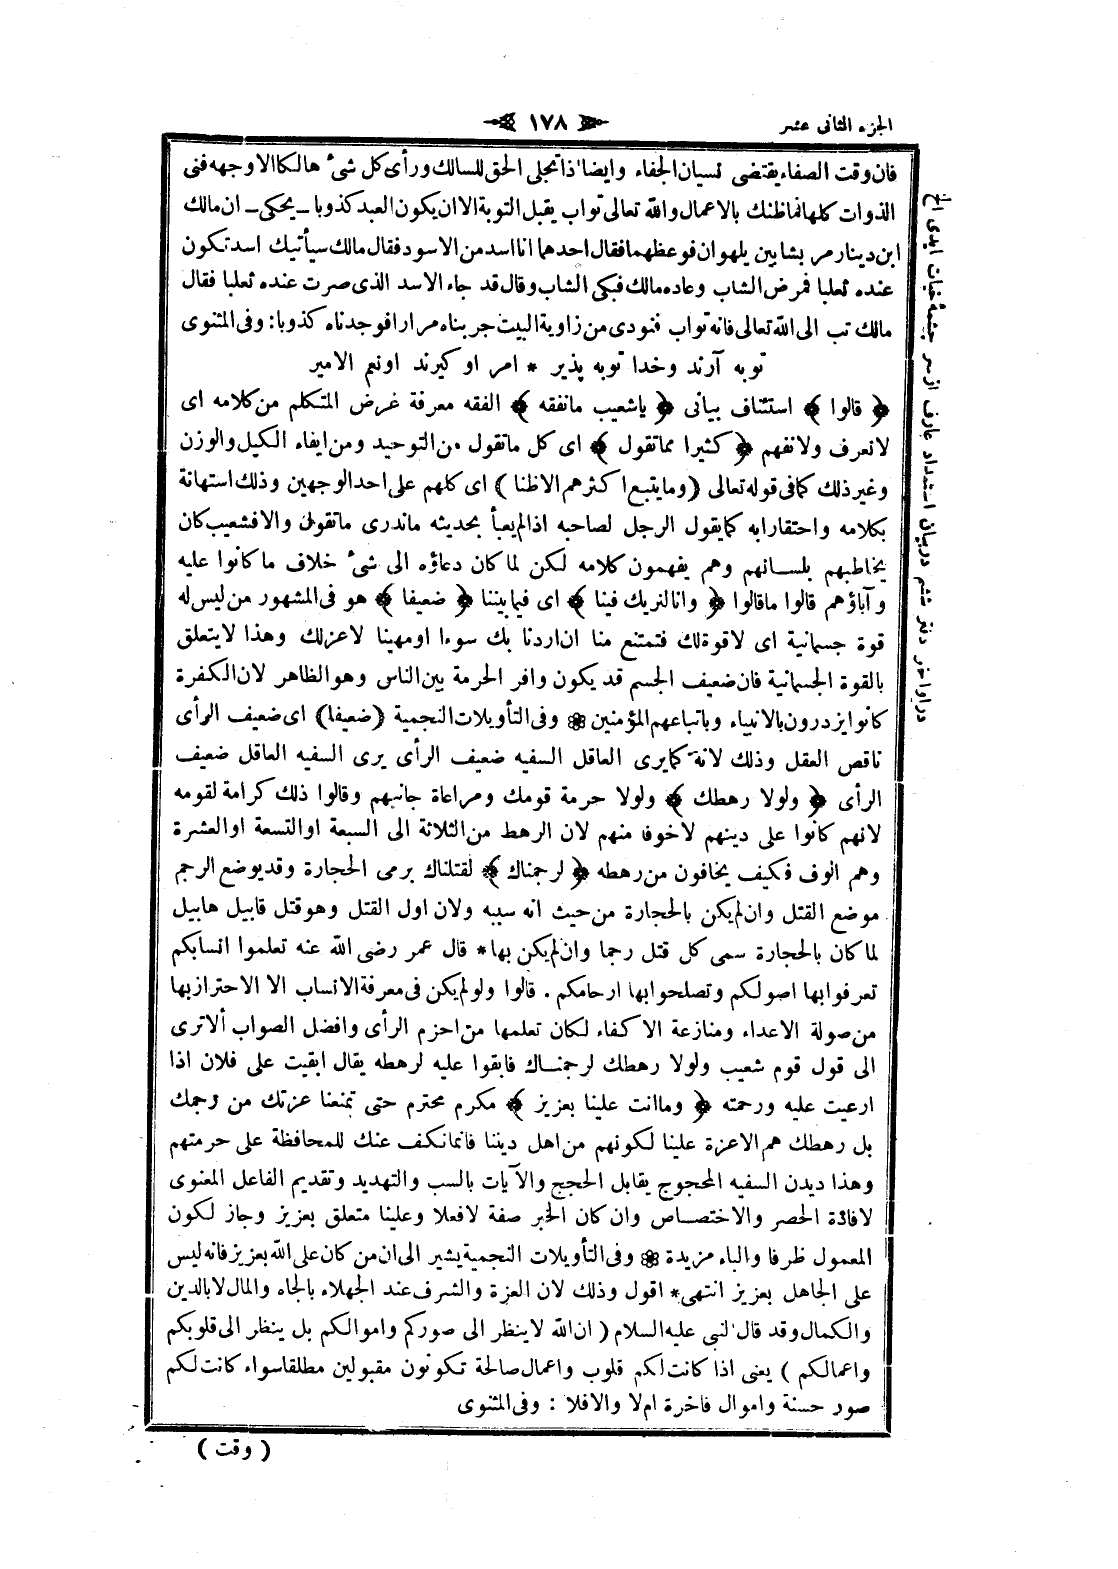 الجزء الثانى عشر
١٧٨
فان وقت الصفاء يقتضى نسيان الجفاء وايضا اذا تجلى الحق للسالك ورأى كل شئ هالكا الا وجهه فنى
الذوات كلها فما ظنك بالاعمال والله تعالى تواب يقبل التوبة الا ان يكون العبد كذوبا ـ يحكى ـ ان مالك
ابن دينار مر بشابين يلهوان فوعظهما فقال احدهما انا اسد من الاسود فقال مالك سيأتيك اسد تكون
عنده ثعلبا فمرض الشاب وعاده مالك فبكى الشاب وقال قد جاء الاسد الذى صرت عنده ثعلبا فقال
مالك تب الى الله تعالى فانه تواب فنودى من زاوية البيت جربناه مرارا فوجدناه كذوبا : وفى المثنوى
توبه آرند وخدا توبه پذير * امر او كيرند اونعم الامير
﴿ قالوا ﴾ استئناف بيانى ﴿ ياشعيب مانفقه ﴾ الفقه معرفة غرض المتكلم من كلامه اى
لانعرف ولانفهم ﴿ كثيرا مما تقول ﴾ اى كل ماتقول من التوحيد ومن ايفاء الكيل والوزن
وغير ذلك كما فى قوله تعالى ( وما يتبع اكثرهم الا ظنا ) اى كلهم على احد الوجهين وذلك استهانة
بكلامه واحتقارا به كما يقول الرجل لصاحبه اذا لم يعبأ بحديثه ماندرى ماتقول والا فشعيب كان
يخاطبهم بلسانهم وهم يفهمون كلامه لكن لما كان دعاؤه الى شئ خلاف ما كانوا عليه
وآباؤهم قالوا ماقالوا ﴿ وانا لنريك فينا ﴾ اى فيما بيننا ﴿ ضعيفا ﴾ هو فى المشهور من ليس له
قوة جسمانية اى لاقوة لك فتمتنع منا ان اردنا بك سوءا اومهينا لاعزلك وهذا لايتعلق
بالقوة الجسمانية فان ضعيف الجسم قد يكون وافر الحرمة بين الناس وهو الظاهر لان الكفرة
كانوا يزدرون بالانبياء وباتباعهم المؤمنين ❀ وفى التأويلات النجمية ( ضعيفا ) اى ضعيف الرأى
ناقص العقل وذلك لانه كما يرى العاقل السفيه ضعيف الرأى يرى السفيه العاقل ضعيف
الرأى ﴿ ولولا رهطك ﴾ ولولا حرمة قومك ومراعاة جانبهم وقالوا ذلك كرامة لقومه
لانهم كانوا على دينهم لاخوفا منهم لان الرهط من الثلاثة الى السبعة او التسعة او العشرة
وهم الوف فكيف يخافون من رهطه ﴿ لرجمناك ﴾ لقتلناك برمى الحجارة وقد يوضع الرجم
موضع القتل وان لم يكن بالحجارة من حيث انه سببه ولان اول القتل وهو قتل قابيل هابيل
لما كان بالحجارة سمى كل قتل رجما وان لم يكن بها * قال عمر رضى الله عنه تعلموا انسابكم
تعرفوا بها اصولكم وتصلحوا بها ارحامكم . قالوا ولو لم يكن فى معرفة الانساب الا الاحتراز بها
من صولة الاعداء ومنازعة الاكفاء لكان تعلمها من احزم الرأى وافضل الصواب ألا ترى
الى قول قوم شعيب ولولا رهطك لرجمناك فابقوا عليه لرهطه يقال ابقيت على فلان اذا
ارعيت عليه ورحمته ﴿ وما انت علينا بعزيز ﴾ مكرم محترم حتى تمنعنا عزتك من رجمك
بل رهطك هم الاعزة علينا لكونهم من اهل ديننا فانما نكف عنك للمحافظة على حرمتهم
وهذا ديدن السفيه المحجوج يقابل الحجج والآيات بالسب والتهديد وتقديم الفاعل المعنوى
لافادة الحصر والاختصاص وان كان الخبر صفة لافعلا وعلينا متعلق بعزيز وجاز لكون
المعمول ظرفا والباء مزيدة ❀ وفى التأويلات النجمية يشير الى ان من كان على الله بعزيز فانه ليس
على الجاهل بعزيز انتهى * اقول وذلك لان العزة والشرف عند الجهلاء بالجاه والمال لا بالدين
والكمال وقد قال النبى عليه السلام ( ان الله لاينظر الى صوركم واموالكم بل ينظر الى قلوبكم
واعمالكم ) يعنى اذا كانت لكم قلوب واعمال صالحة تكونون مقبولين مطلقا سواء كانت لكم
صور حسنة واموال فاخرة ام لا والا فلا : وفى المثنوى
( وقت )
در اواخر دفتر ششم در بيان استمداد عارف از سر چشمهٔ حيات ابدى الخ